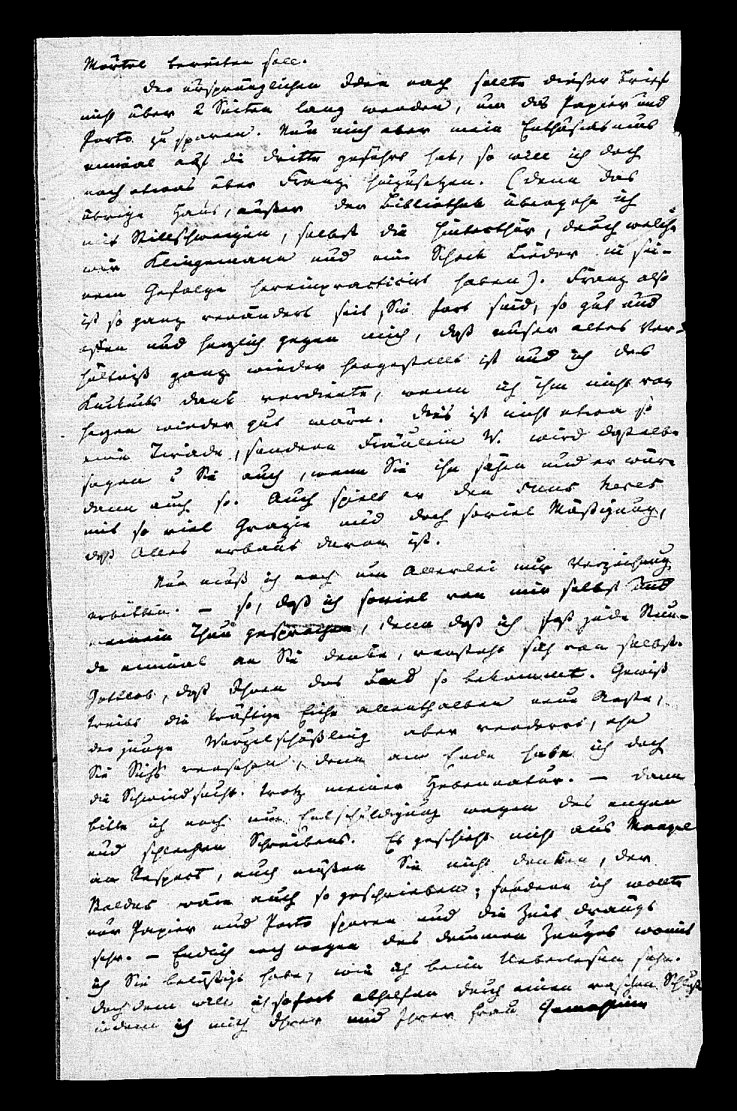 Mörtel bereiten soll.
Der ursprünglichen Idee nach sollte dieser Brief
nicht über 2 Seiten lang werden, um das Papier und
Porto zu sparen. Nun mich aber mein Enthusiasmus
einmal auf die dritte geführt hat, so will ich doch
noch etwas über Franz hinzusetzen. (denn das
übrige Haus, außer der Bibliothek übergehe ich
mit Stillschweigen, selbst die Hinterthür, durch welche
wir Klingemann und eine Schock Lieder in sei-
nem Gefolge hereinpracticirt haben). Franz also
ist so ganz verändert seit Sie fort sind, so gut und
offen und herzlich gegen mich, daß unser altes Ver-
hältniß ganz wieder hergestellt ist und ich des
Kuckucks Dank verdiente, wenn ich ihm nicht von
Herzen wieder gut wäre. Dies ist nicht etwa so
eine Tirade, sondern Fräulein W. wird dasselbe
sagen & Sie auch, wenn Sie ihn sähen und er wäre
dann auch so. Auch spielt er den
mit so viel Grazie und doch soviel Mäßigung,
daß Alles erbaut davon ist.
Nun muß ich noch um Allerlei nur Verzeihung
erbitten. – so, daß ich soviel von mir selbst und
meinem Thun gesprochen, denn daß ich fast jede Stun-
de einmal an Sie denke, versteht sich von selbst.
Gottlob, daß Ihnen das Bad so bekommt. Gewiß
treibt die kräftige Eiche allenthalben neue Aeste,
der junge Wurzelschößling aber verdorrt, ehe
Sie Sichs versehen, denn am Ende habe ich doch
die Schwindsucht trotz meiner – Dann
bitte ich noch um Entschuldigung wegen des engen
und schlechten Schreibens. Es geschieht nicht aus Mangel
an Respect, auch müßen Sie nicht denken, der
wäre auch so geschrieben; sondern ich wollte
nur Papier und Porto sparen und die Zeit drängt
sehr. – Endlich noch wegen des dummen Zeuges womit
ich Sie belästigt habe, wie ich beim Ueberlesen sehe.
doch dem will ich sofort abhelfen durch einen raschen Schluß
indem ich mich Ihrer und Ihrer Frau Gemahlinn